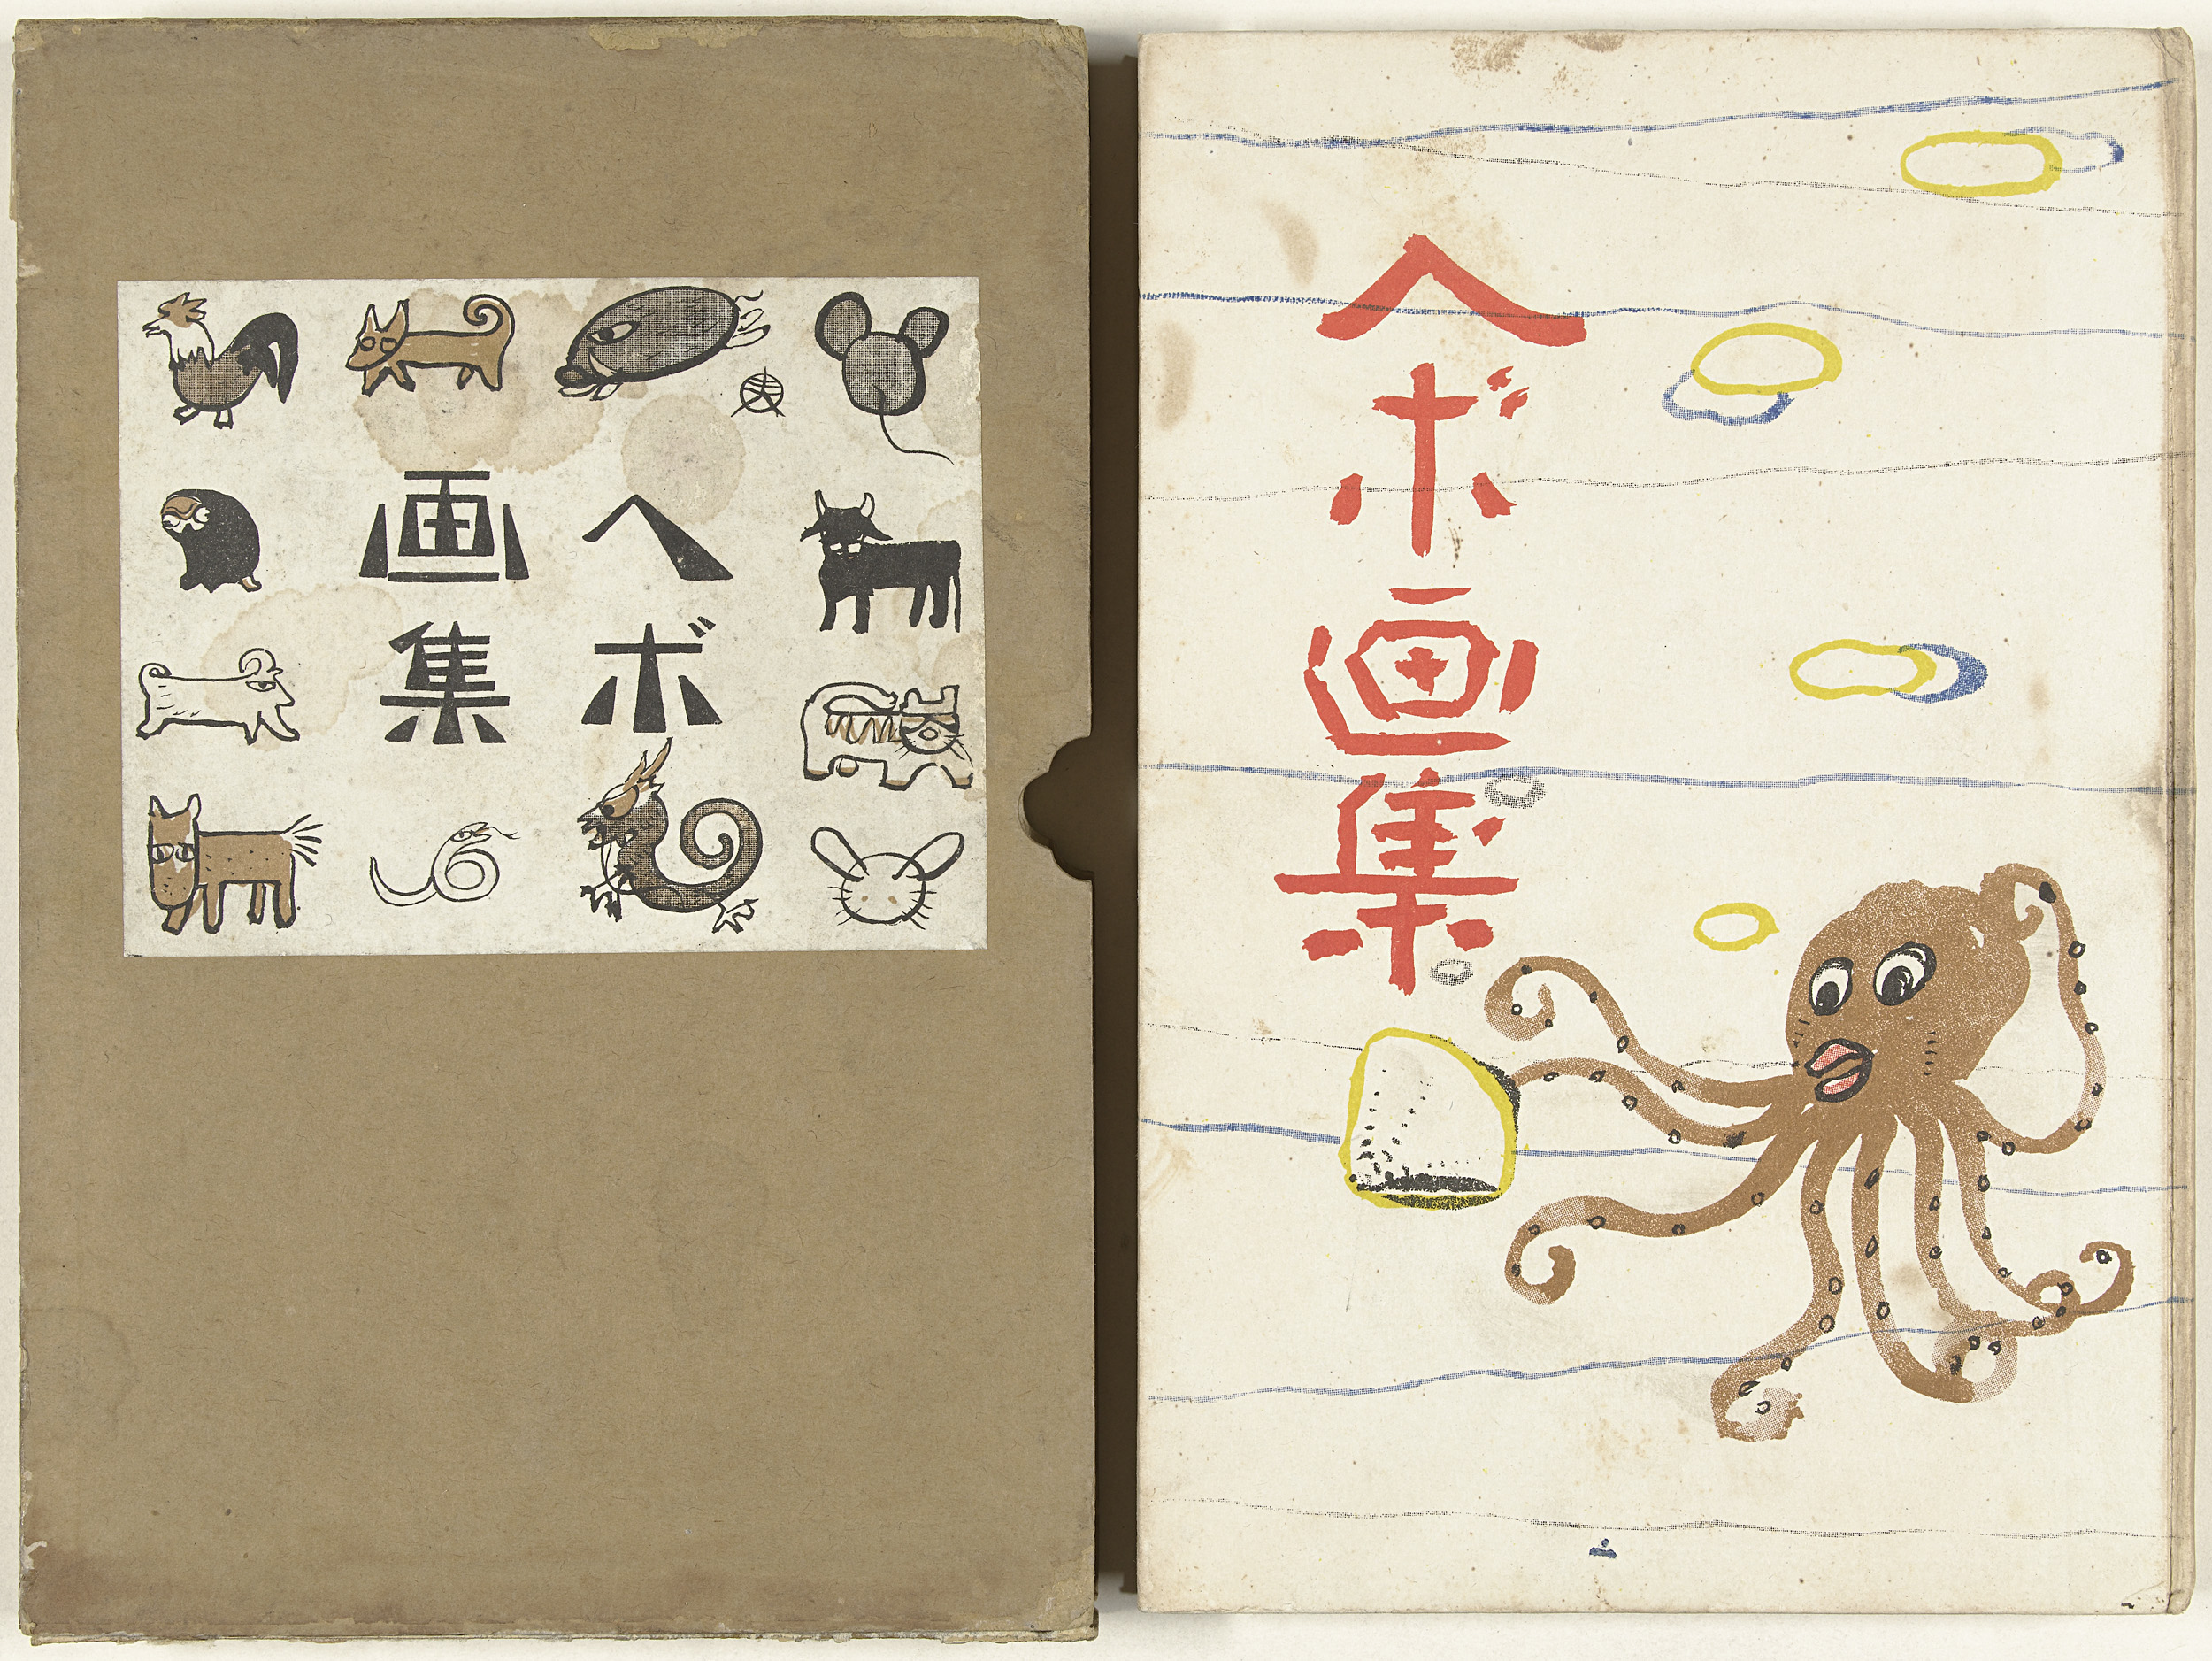 ヘボ
画集
ヘボ画集